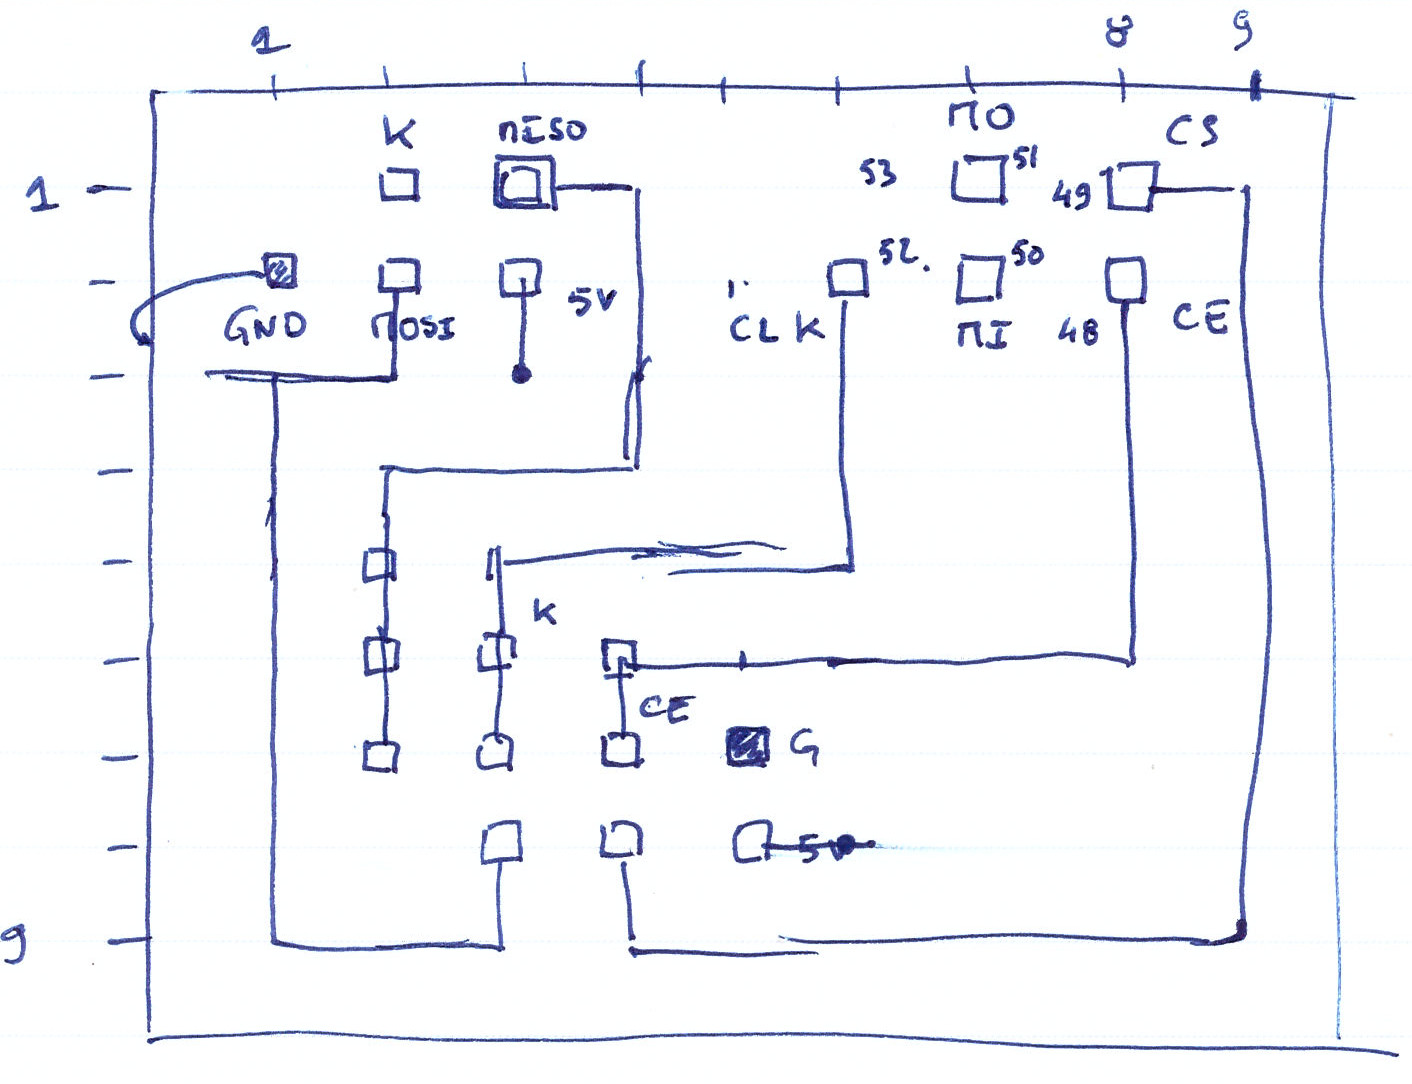 1 8 9
K MISO MO CS
1 53 51 49
52. 50
GND MOSI 5V CLK MI 48 CE
K
CE
G
5V
9